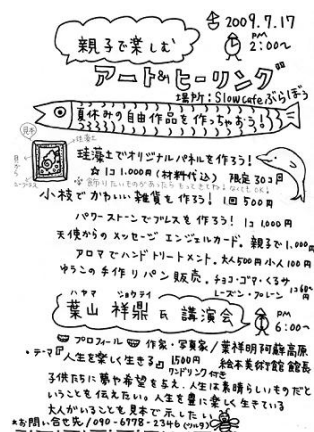 2009.7.17
PM
2:00〜
親子で楽しむ
アート&ヒーリング
場所:Slowcafeぶらぼう
夏休みの自由作品を作っちゃおう!
見本
珪藻土
珪藻土でオリジナルパネルを作ろう!
☆1コ 1,000円(材料代込) 限定30コ
※飾りたいものがあったらもってきてね♪なくてもOK!
小枝でかわいい雑貨を作ろう! 1回500円
パワーストーンでブレスを作ろう! 1コ 1,000円
天使からのメッセージ エンジェルカード。親子で1,000円
アロマでハンドトリートメント。大人500円小人100円
ゆうこの手作りパン販売。チョコ・ゴマ・くるみ
レーズン・プレーン
1コ60〜
円
ハヤマ ショウテイ
葉山 祥鼎氏講演会
PM
6:00〜
プロフィール 作家・写真家/葉祥明阿蘇高原
絵本美術館館長
・テーマ『人生を楽しく生きる』1500円
ワンドリンク付き
子供たちに夢や希望を与え、人生は素晴らしいものだと
いうことを伝えたい。人生を豊に楽しく生きている
大人がいることを見本で示したい。
*お問い合せ先/090-6778-2346(ツルタ)